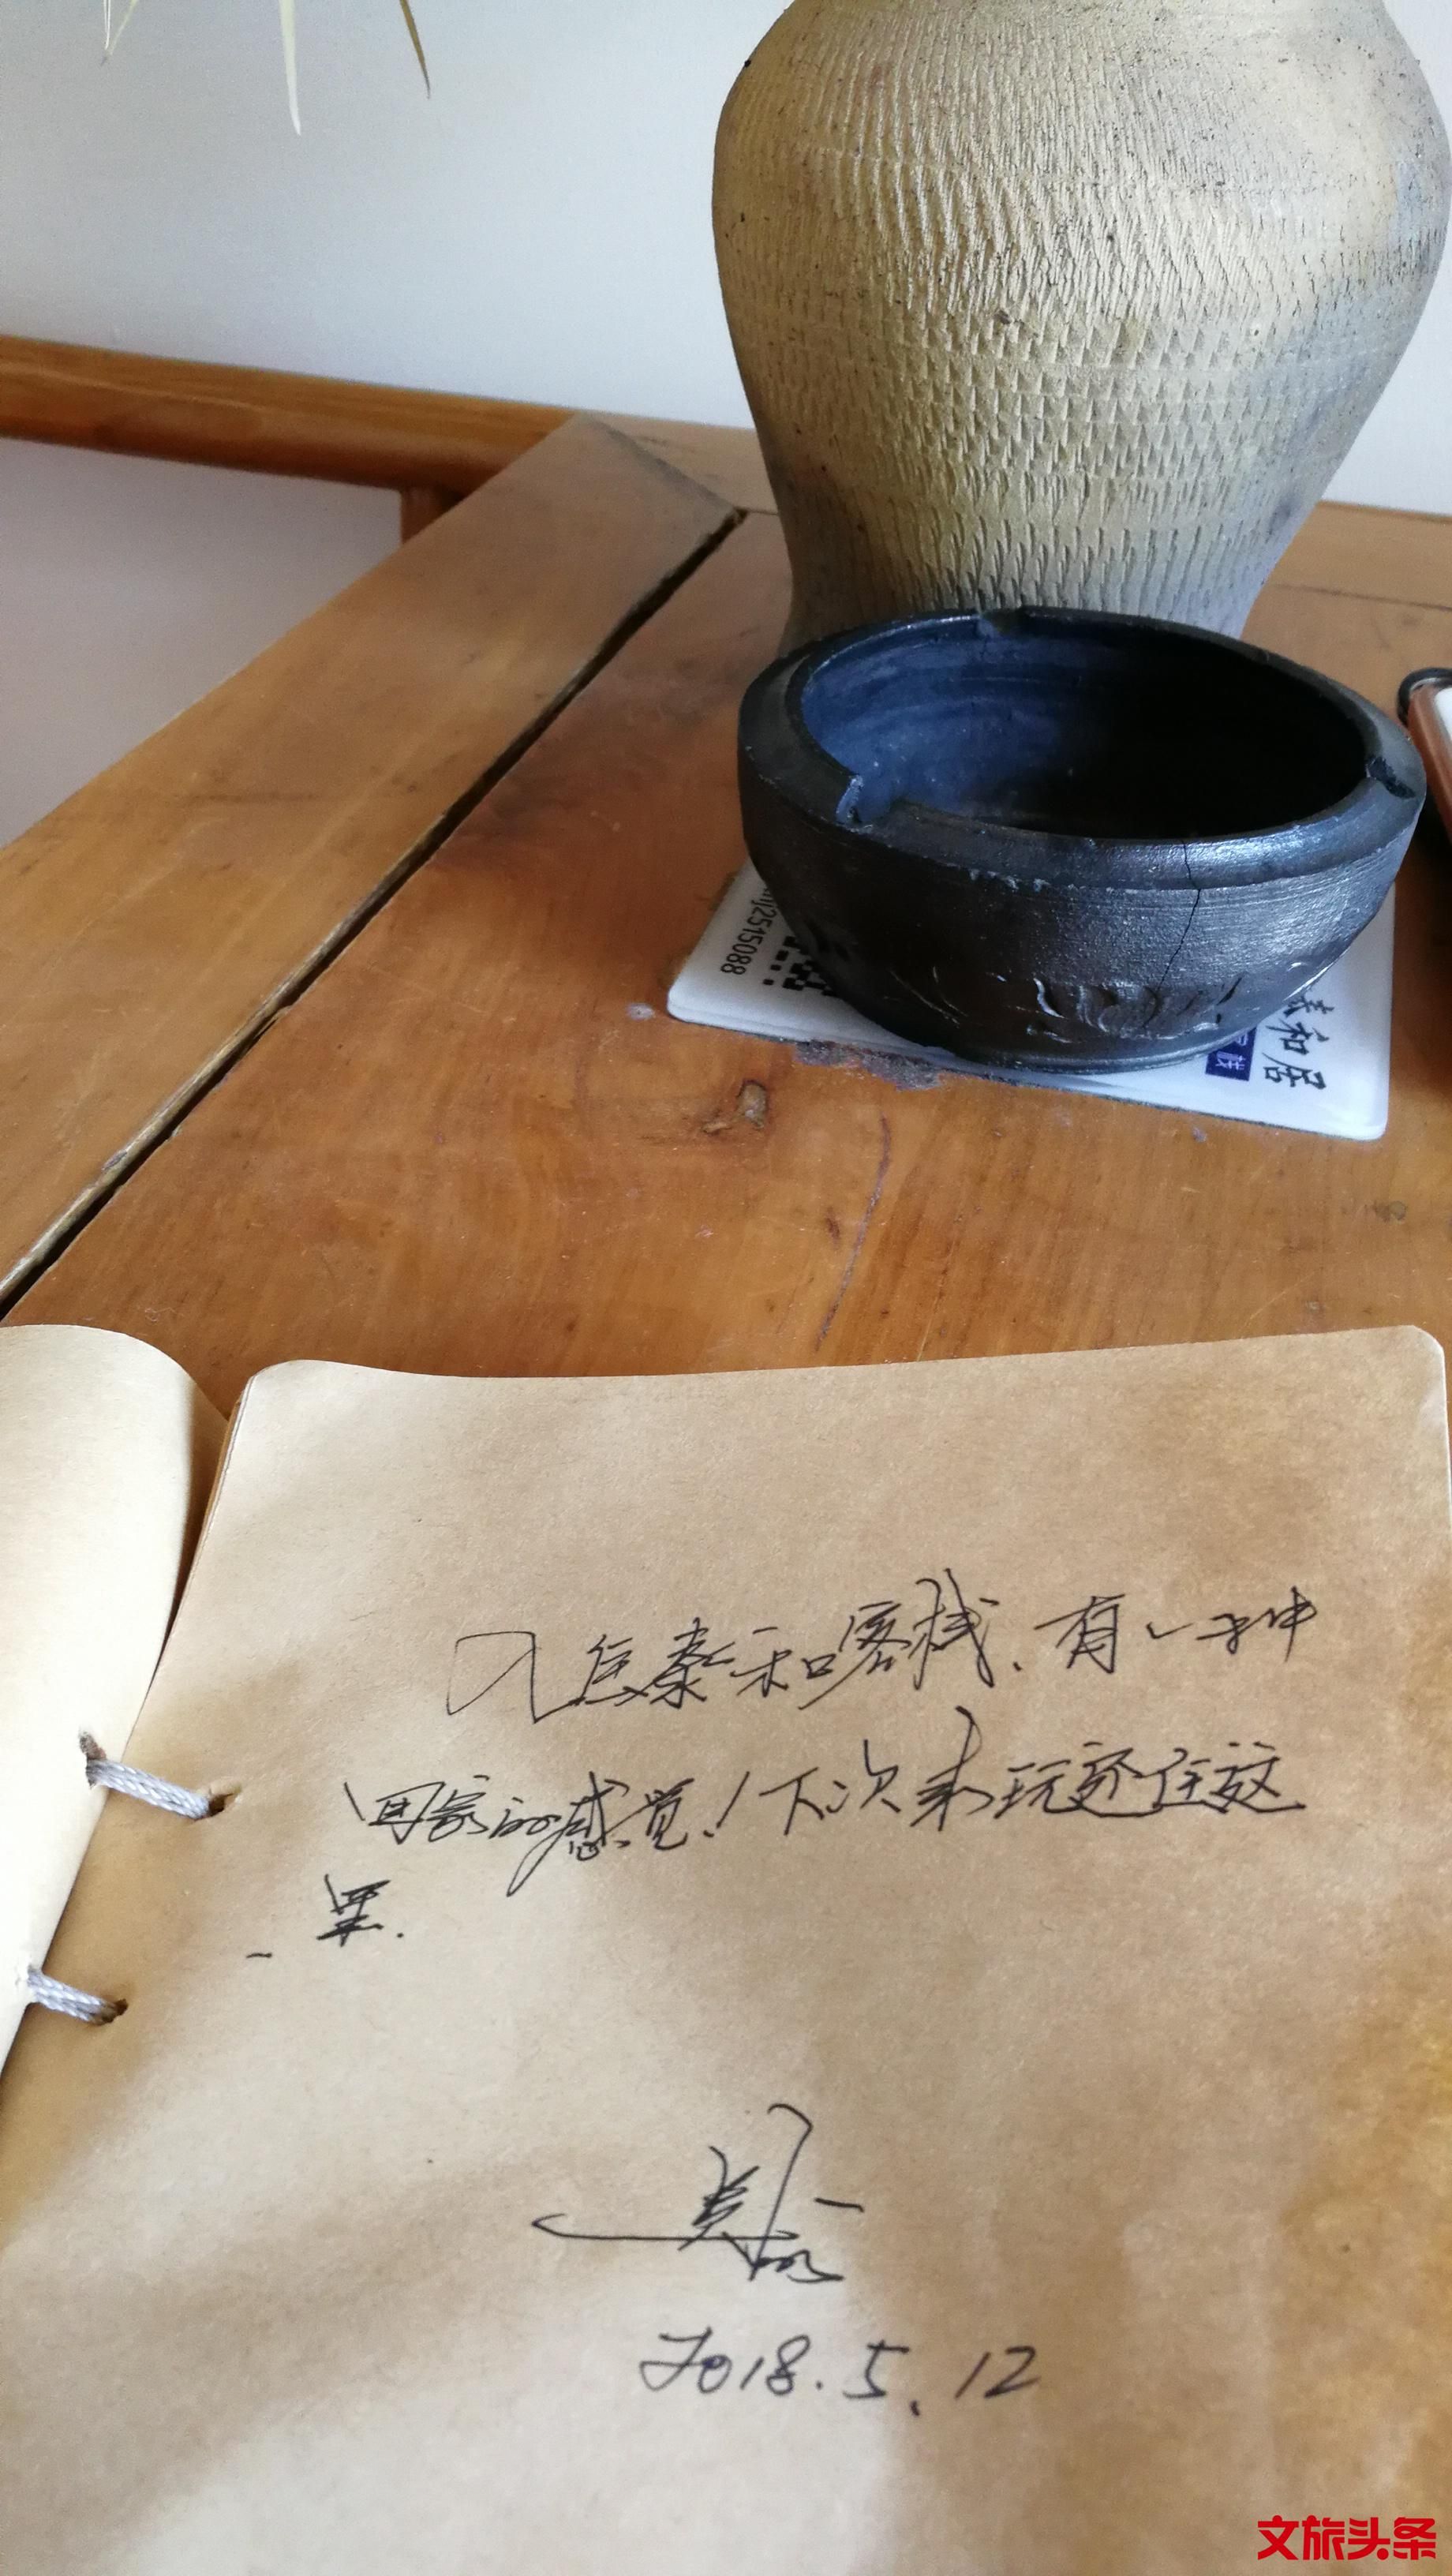 mj2515088
和居
客栈
入住泰和客栈、有一种
回家的感觉！下次来玩还住这
里.
2018.5.12
文旅头条